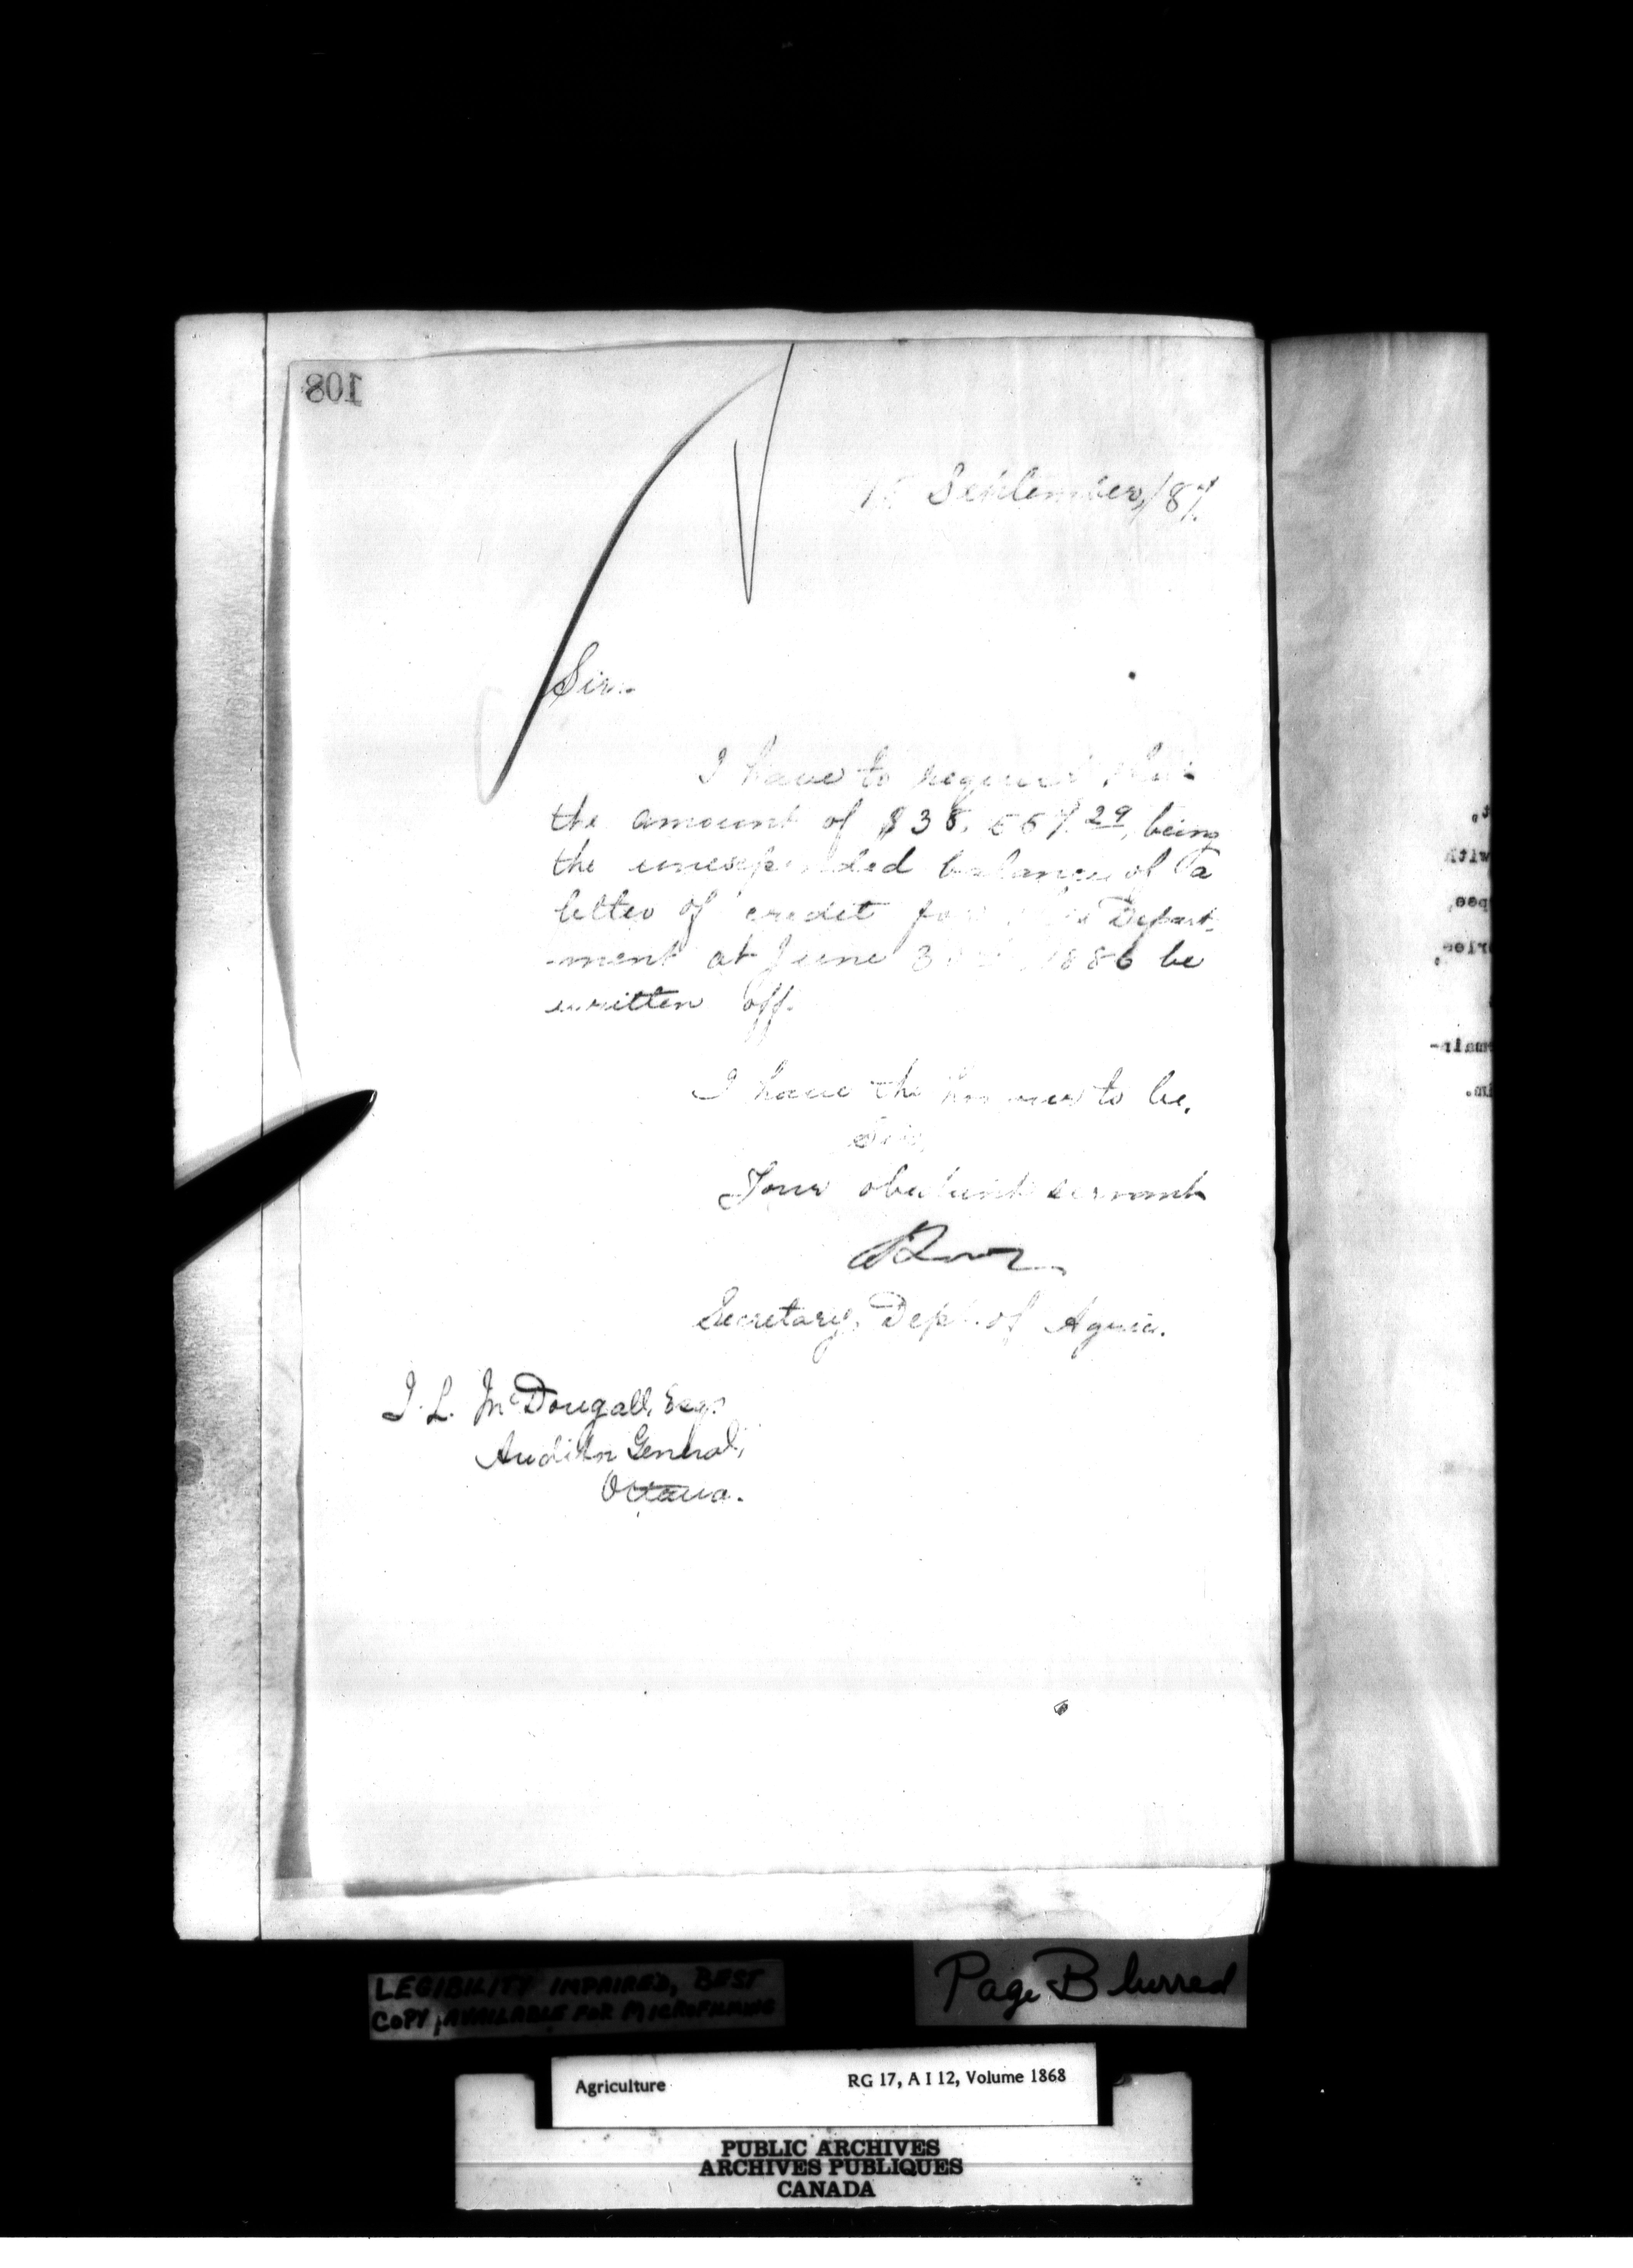 108
15 September, /87.
Sir:
I have to request that
the amount of $38, 557.29, being
the unexpended balance of a
letter of credit for this Depart-
-ment at June 30th, 1886 be
written off.
I have the honour to be,
Sir,
Your obedient servant
Secretary, Dept. of Agric.
J. L. McDougall, Esq.
Auditor General,
Ottawa.
LEGIBILITY IMPAIRED, BEST
COPY AVAILABLE FOR MICROFILMING
Page Blurred
Agriculture RG 17, A I 12, Volume 1868
PUBLIC ARCHIVES
ARCHIVES PUBLIQUES
CANADA